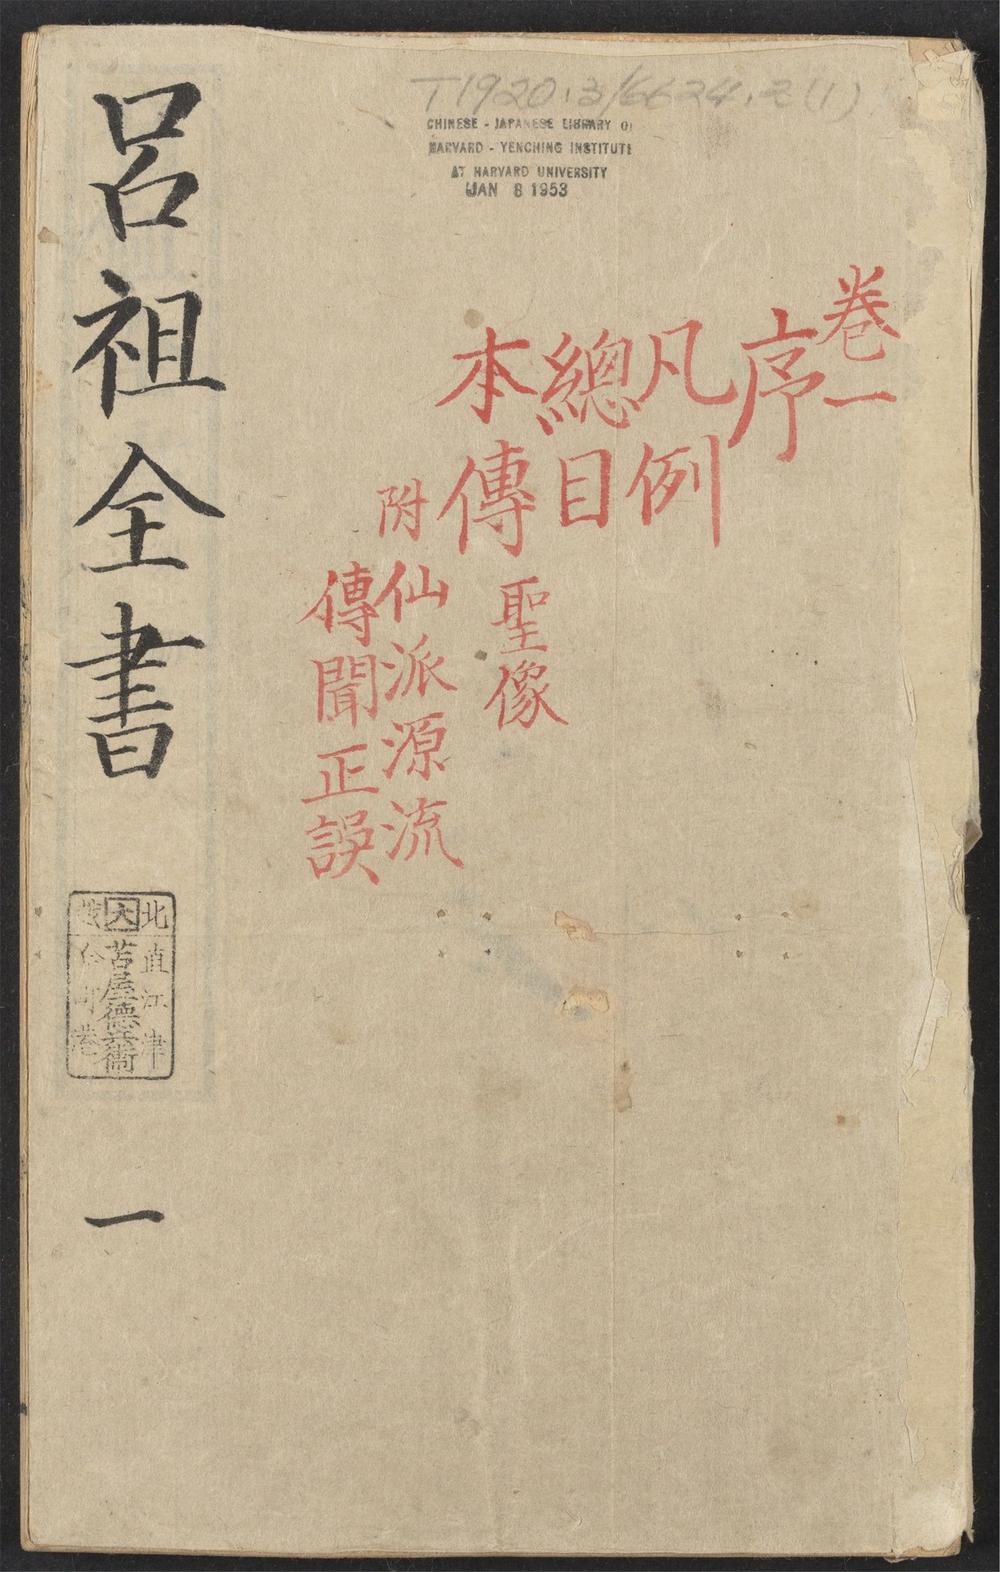 T1920.3/6624.2(1)
CHINESE - JAPANESE LIBRARY OF
HARVARD - YENCHING INSTITUTE
AT HARVARD UNIVERSITY
JAN 8 1953
卷一
序
凡例
總目
本傳 聖像
附 仙派源流
傳聞正誤
呂祖全書
北直江津
大 苫屋德兵衞
港
一